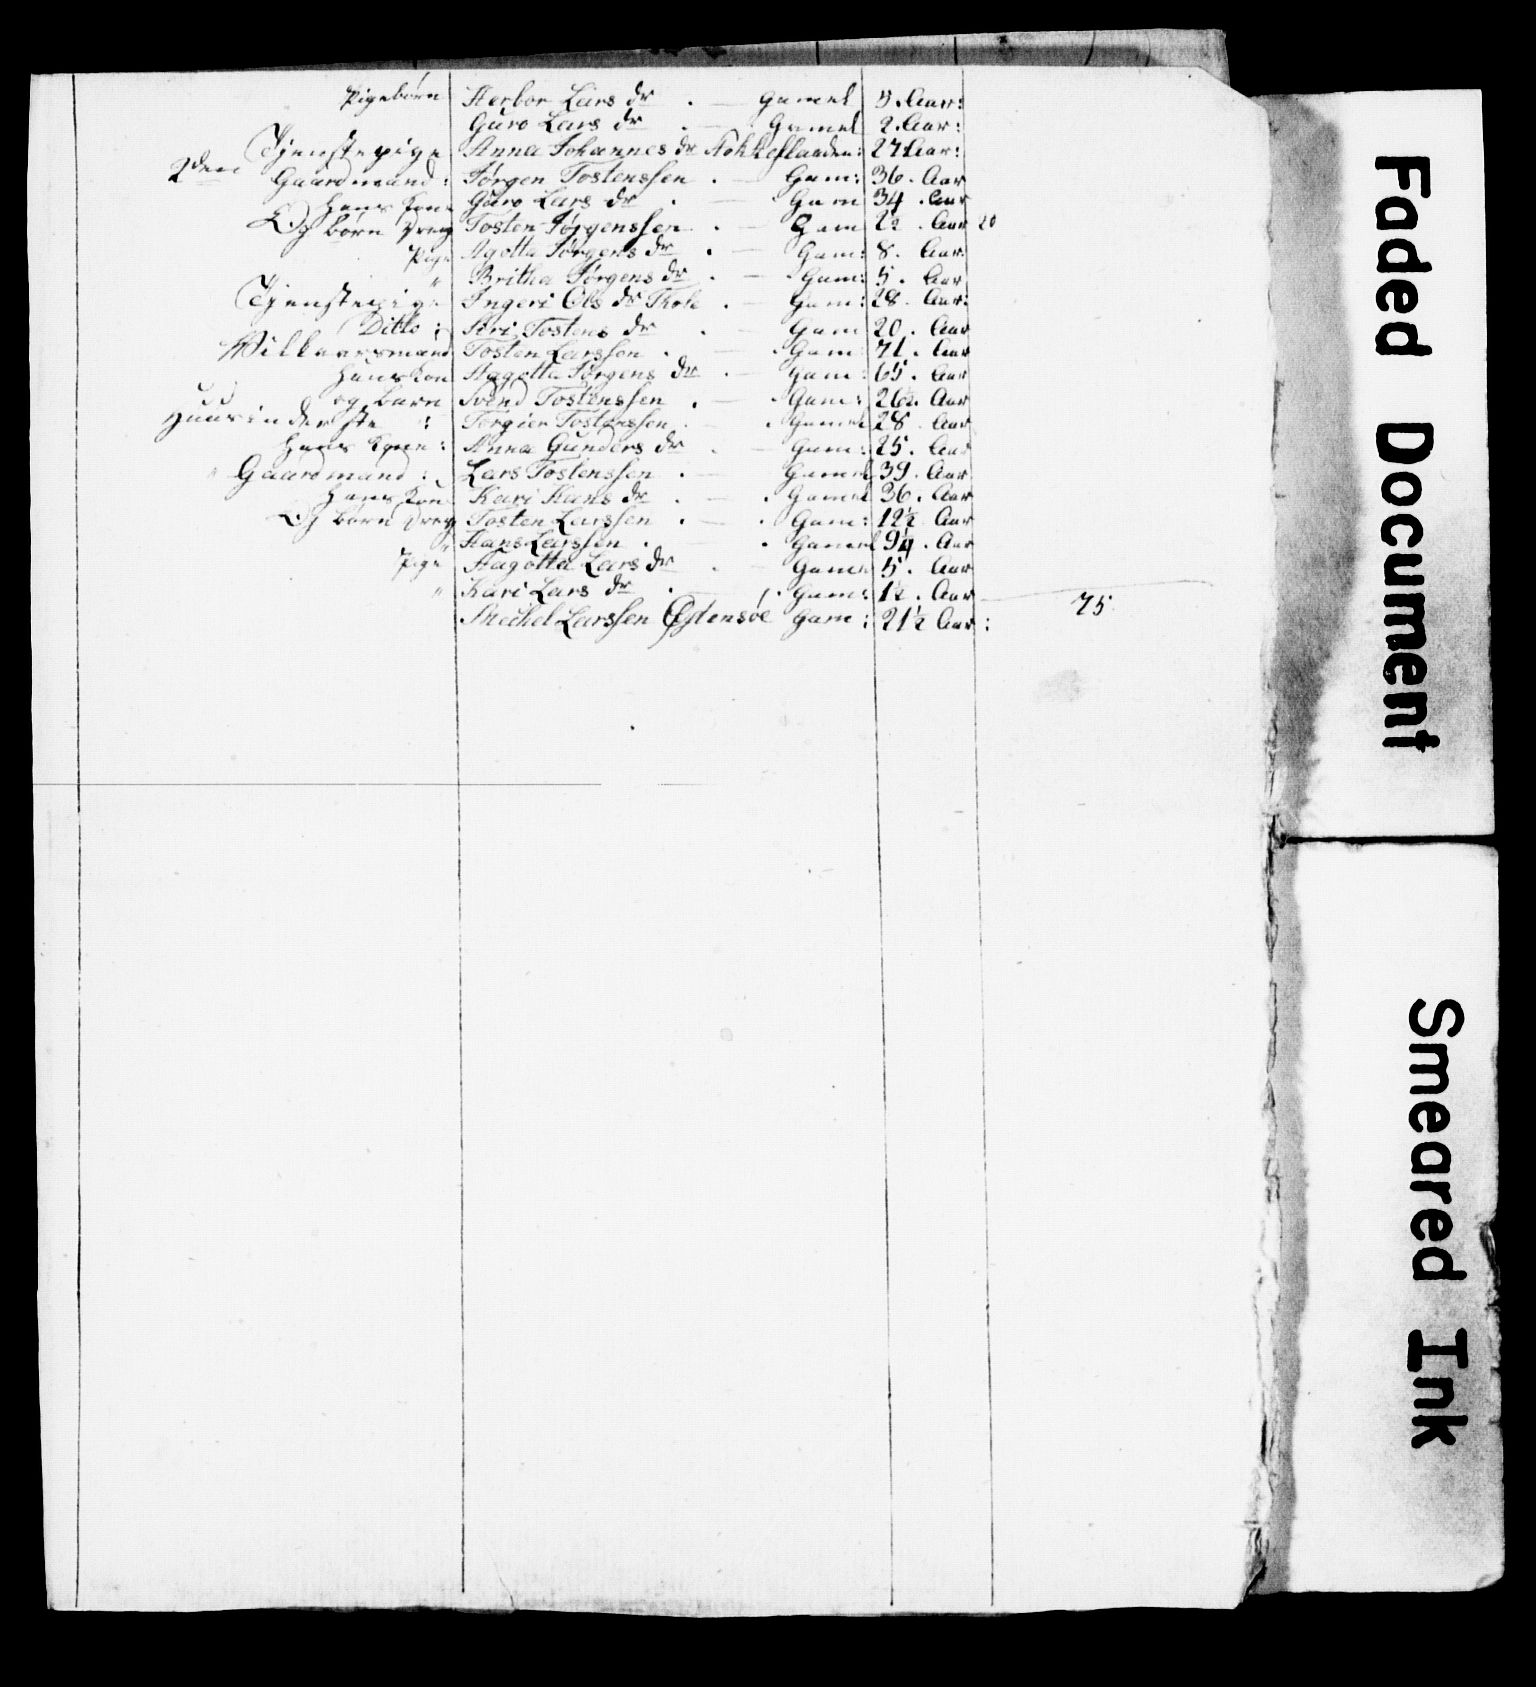 Pigebørn Herbor Lars dr . — gamel 3. Aar:
Guro Lars dr . — Gamel 2. Aar:
Tjenstepige Anna Johannes dr 27 Aar:
2den Gaardmand: Jørgen Tostenssen . — Gam: 36. Aar
Hans Kone Guro Lars dr . — Gam 34. Aar
Og børn Dreng Tosten Jørgenssen . — Gam Aar 20
Pige Agotta Jørgens dr . — Gam: 8. Aar
" Britha Jørgens dr . — Gam: 5. Aar
Tjenstepige Ingeri Ols dr . — Gam: 28. Aar:
Ditto: Siri Tostens dr . — Gam 20. Aar
Willaarsmand Tosten Larssen . — Gam: 71. Aar
Hans Kon Aagotta Jørgens dr . — Gam: 65. Aar
og barn Svend Tostenssen . — Gam: 26½. Aar
Huusinderste : Torgier Tostenssen . Gamel 28. Aar
Hans Kone: Anna Gunders dr . — Gam: 25. Aar
" Gaardmand: Lars Tostenssen . — Gamel 39. Aar
Hans Kon Kari Hans dr . — Gamel 36. Aar
Og børn Dreng Tosten Larssen . — Gam: 12½ Aar
" Hans Larssen . . Gamel 9¼. Aar
Pige Aagotta Lars dr . — Gamel 5. Aar
" Kari Lars dr . — Gam: 1½. Aar
Michel Larssen Østensøe Gam: 21½ Aar: 75
Faded Document
Smeared Ink